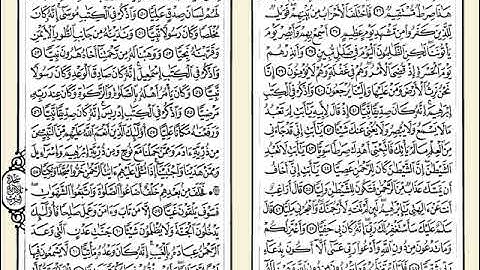 هَٰذَا صِرَٰطٌ مُّسْتَقِيمٌ فَٱخْتَلَفَ ٱلْأَحْزَابُ مِنۢ بَيْنِهِمْ فَوَيْلٌ
لِّلَّذِينَ كَفَرُوا۟ مِن مَّشْهَدِ يَوْمٍ عَظِيمٍ أَسْمِعْ بِهِمْ وَأَبْصِرْ يَوْمَ
يَأْتُونَنَا لَٰكِنِ ٱلظَّٰلِمُونَ ٱلْيَوْمَ فِى ضَلَٰلٍ مُّبِينٍ وَأَنذِرْهُمْ
يَوْمَ ٱلْحَسْرَةِ إِذْ قُضِىَ ٱلْأَمْرُ وَهُمْ فِى غَفْلَةٍ وَهُمْ لَا يُؤْمِنُونَ إِنَّا
نَحْنُ نَرِثُ ٱلْأَرْضَ وَمَنْ عَلَيْهَا وَإِلَيْنَا يُرْجَعُونَ وَٱذْكُرْ فِى ٱلْكِتَٰبِ
إِبْرَٰهِيمَ إِنَّهُۥ كَانَ صِدِّيقًا نَّبِيًّا إِذْ قَالَ لِأَبِيهِ يَٰٓأَبَتِ لِمَ تَعْبُدُ
مَا لَا يَسْمَعُ وَلَا يُبْصِرُ وَلَا يُغْنِى عَنكَ شَيْـًٔا يَٰٓأَبَتِ إِنِّى قَدْ جَآءَنِى
مِنَ ٱلْعِلْمِ مَا لَمْ يَأْتِكَ فَٱتَّبِعْنِىٓ أَهْدِكَ صِرَٰطًا سَوِيًّا يَٰٓأَبَتِ لَا تَعْبُدِ
ٱلشَّيْطَٰنَ إِنَّ ٱلشَّيْطَٰنَ كَانَ لِلرَّحْمَٰنِ عَصِيًّا يَٰٓأَبَتِ إِنِّىٓ أَخَافُ
أَن يَمَسَّكَ عَذَابٌ مِّنَ ٱلرَّحْمَٰنِ فَتَكُونَ لِلشَّيْطَٰنِ وَلِيًّا قَالَ أَرَاغِبٌ
أَنتَ عَنْ ءَالِهَتِى يَٰٓإِبْرَٰهِيمُ لَئِن لَّمْ تَنتَهِ لَأَرْجُمَنَّكَ وَٱهْجُرْنِى مَلِيًّا
قَالَ سَلَٰمٌ عَلَيْكَ سَأَسْتَغْفِرُ لَكَ رَبِّىٓ إِنَّهُۥ كَانَ بِى حَفِيًّا وَأَعْتَزِلُكُمْ
وَمَا تَدْعُونَ مِن دُونِ ٱللَّهِ وَأَدْعُوا۟ رَبِّى عَسَىٰٓ أَلَّآ أَكُونَ بِدُعَآءِ
لَهُمْ لِسَانَ صِدْقٍ عَلِيًّا وَٱذْكُرْ فِى ٱلْكِتَٰبِ مُوسَىٰٓ إِنَّهُۥ كَانَ
مُخْلَصًا وَكَانَ رَسُولًا نَّبِيًّا وَنَٰدَيْنَٰهُ مِن جَانِبِ ٱلطُّورِ ٱلْأَيْمَنِ
وَقَرَّبْنَٰهُ نَجِيًّا وَوَهَبْنَا لَهُۥ مِن رَّحْمَتِنَآ أَخَاهُ هَٰرُونَ نَبِيًّا
وَٱذْكُرْ فِى ٱلْكِتَٰبِ إِسْمَٰعِيلَ إِنَّهُۥ كَانَ صَادِقَ ٱلْوَعْدِ وَكَانَ رَسُولًا
نَّبِيًّا وَكَانَ يَأْمُرُ أَهْلَهُۥ بِٱلصَّلَوٰةِ وَٱلزَّكَوٰةِ وَكَانَ عِندَ رَبِّهِۦ
مَرْضِيًّا وَٱذْكُرْ فِى ٱلْكِتَٰبِ إِدْرِيسَ إِنَّهُۥ كَانَ صِدِّيقًا نَّبِيًّا
وَرَفَعْنَٰهُ مَكَانًا عَلِيًّا أُو۟لَٰٓئِكَ ٱلَّذِينَ أَنْعَمَ ٱللَّهُ عَلَيْهِم مِّنَ ٱلنَّبِيِّـۧنَ
مِن ذُرِّيَّةِ ءَادَمَ وَمِمَّنْ حَمَلْنَا مَعَ نُوحٍ وَمِن ذُرِّيَّةِ إِبْرَٰهِيمَ وَإِسْرَٰٓءِيلَ
وَمِمَّنْ هَدَيْنَا وَٱجْتَبَيْنَآ إِذَا تُتْلَىٰ عَلَيْهِمْ ءَايَٰتُ ٱلرَّحْمَٰنِ خَرُّوا۟ سُجَّدًا وَبُكِيًّا
فَخَلَفَ مِنۢ بَعْدِهِمْ خَلْفٌ أَضَاعُوا۟ ٱلصَّلَوٰةَ وَٱتَّبَعُوا۟ ٱلشَّهَوَٰتِ
فَسَوْفَ يَلْقَوْنَ غَيًّا إِلَّا مَن تَابَ وَءَامَنَ وَعَمِلَ صَٰلِحًا فَأُو۟لَٰٓئِكَ
يَدْخُلُونَ ٱلْجَنَّةَ وَلَا يُظْلَمُونَ شَيْـًٔا جَنَّٰتِ عَدْنٍ ٱلَّتِى وَعَدَ
ٱلرَّحْمَٰنُ عِبَادَهُۥ بِٱلْغَيْبِ إِنَّهُۥ كَانَ وَعْدُهُۥ مَأْتِيًّا لَّا يَسْمَعُونَ فِيهَا